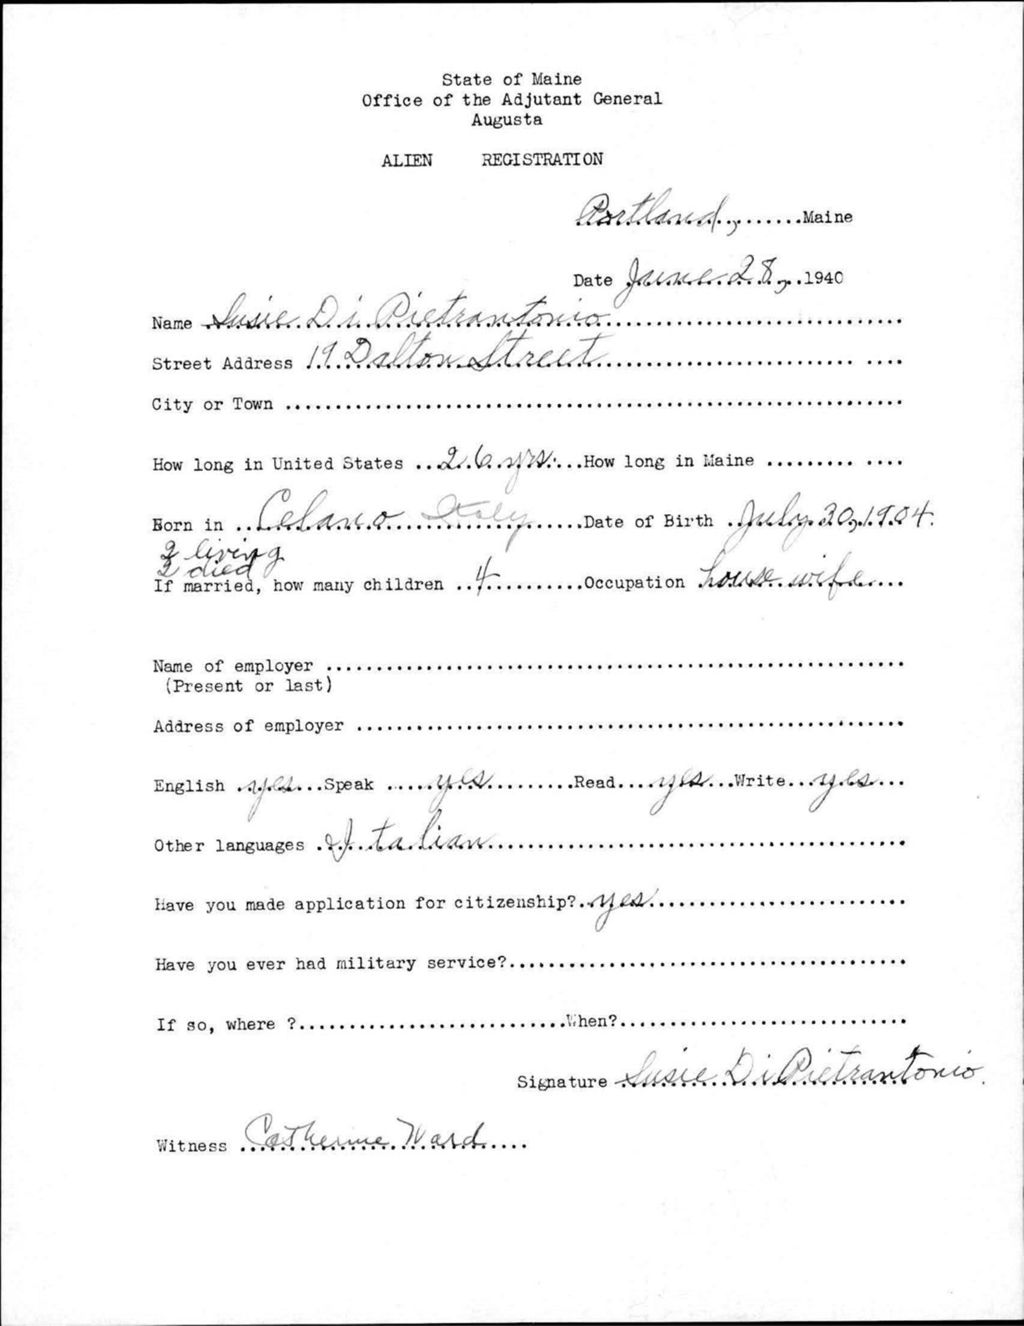 State of Maine
Office of the Adjutant General
Augusta
ALIEN REGISTRATION
Portland, ........Maine
Date June 28, ..1940
Name Susie Di Pietrantonio
Street Address 19 Dalton Street
City or Town
How long in United States 26 yrs. How long in Maine
Born in Celano Italy Date of Birth July 30, 1904.
2 living
2 died
If married, how many children 4 Occupation house wife
Name of employer
(Present or last)
Address of employer
English yes Speak yes Read yes Write yes
Other languages Italian
Have you made application for citizenship? yes
Have you ever had military service?
If so, where ? When?
Signature Susie Di Pietrantonio.
Witness Catherine Ward